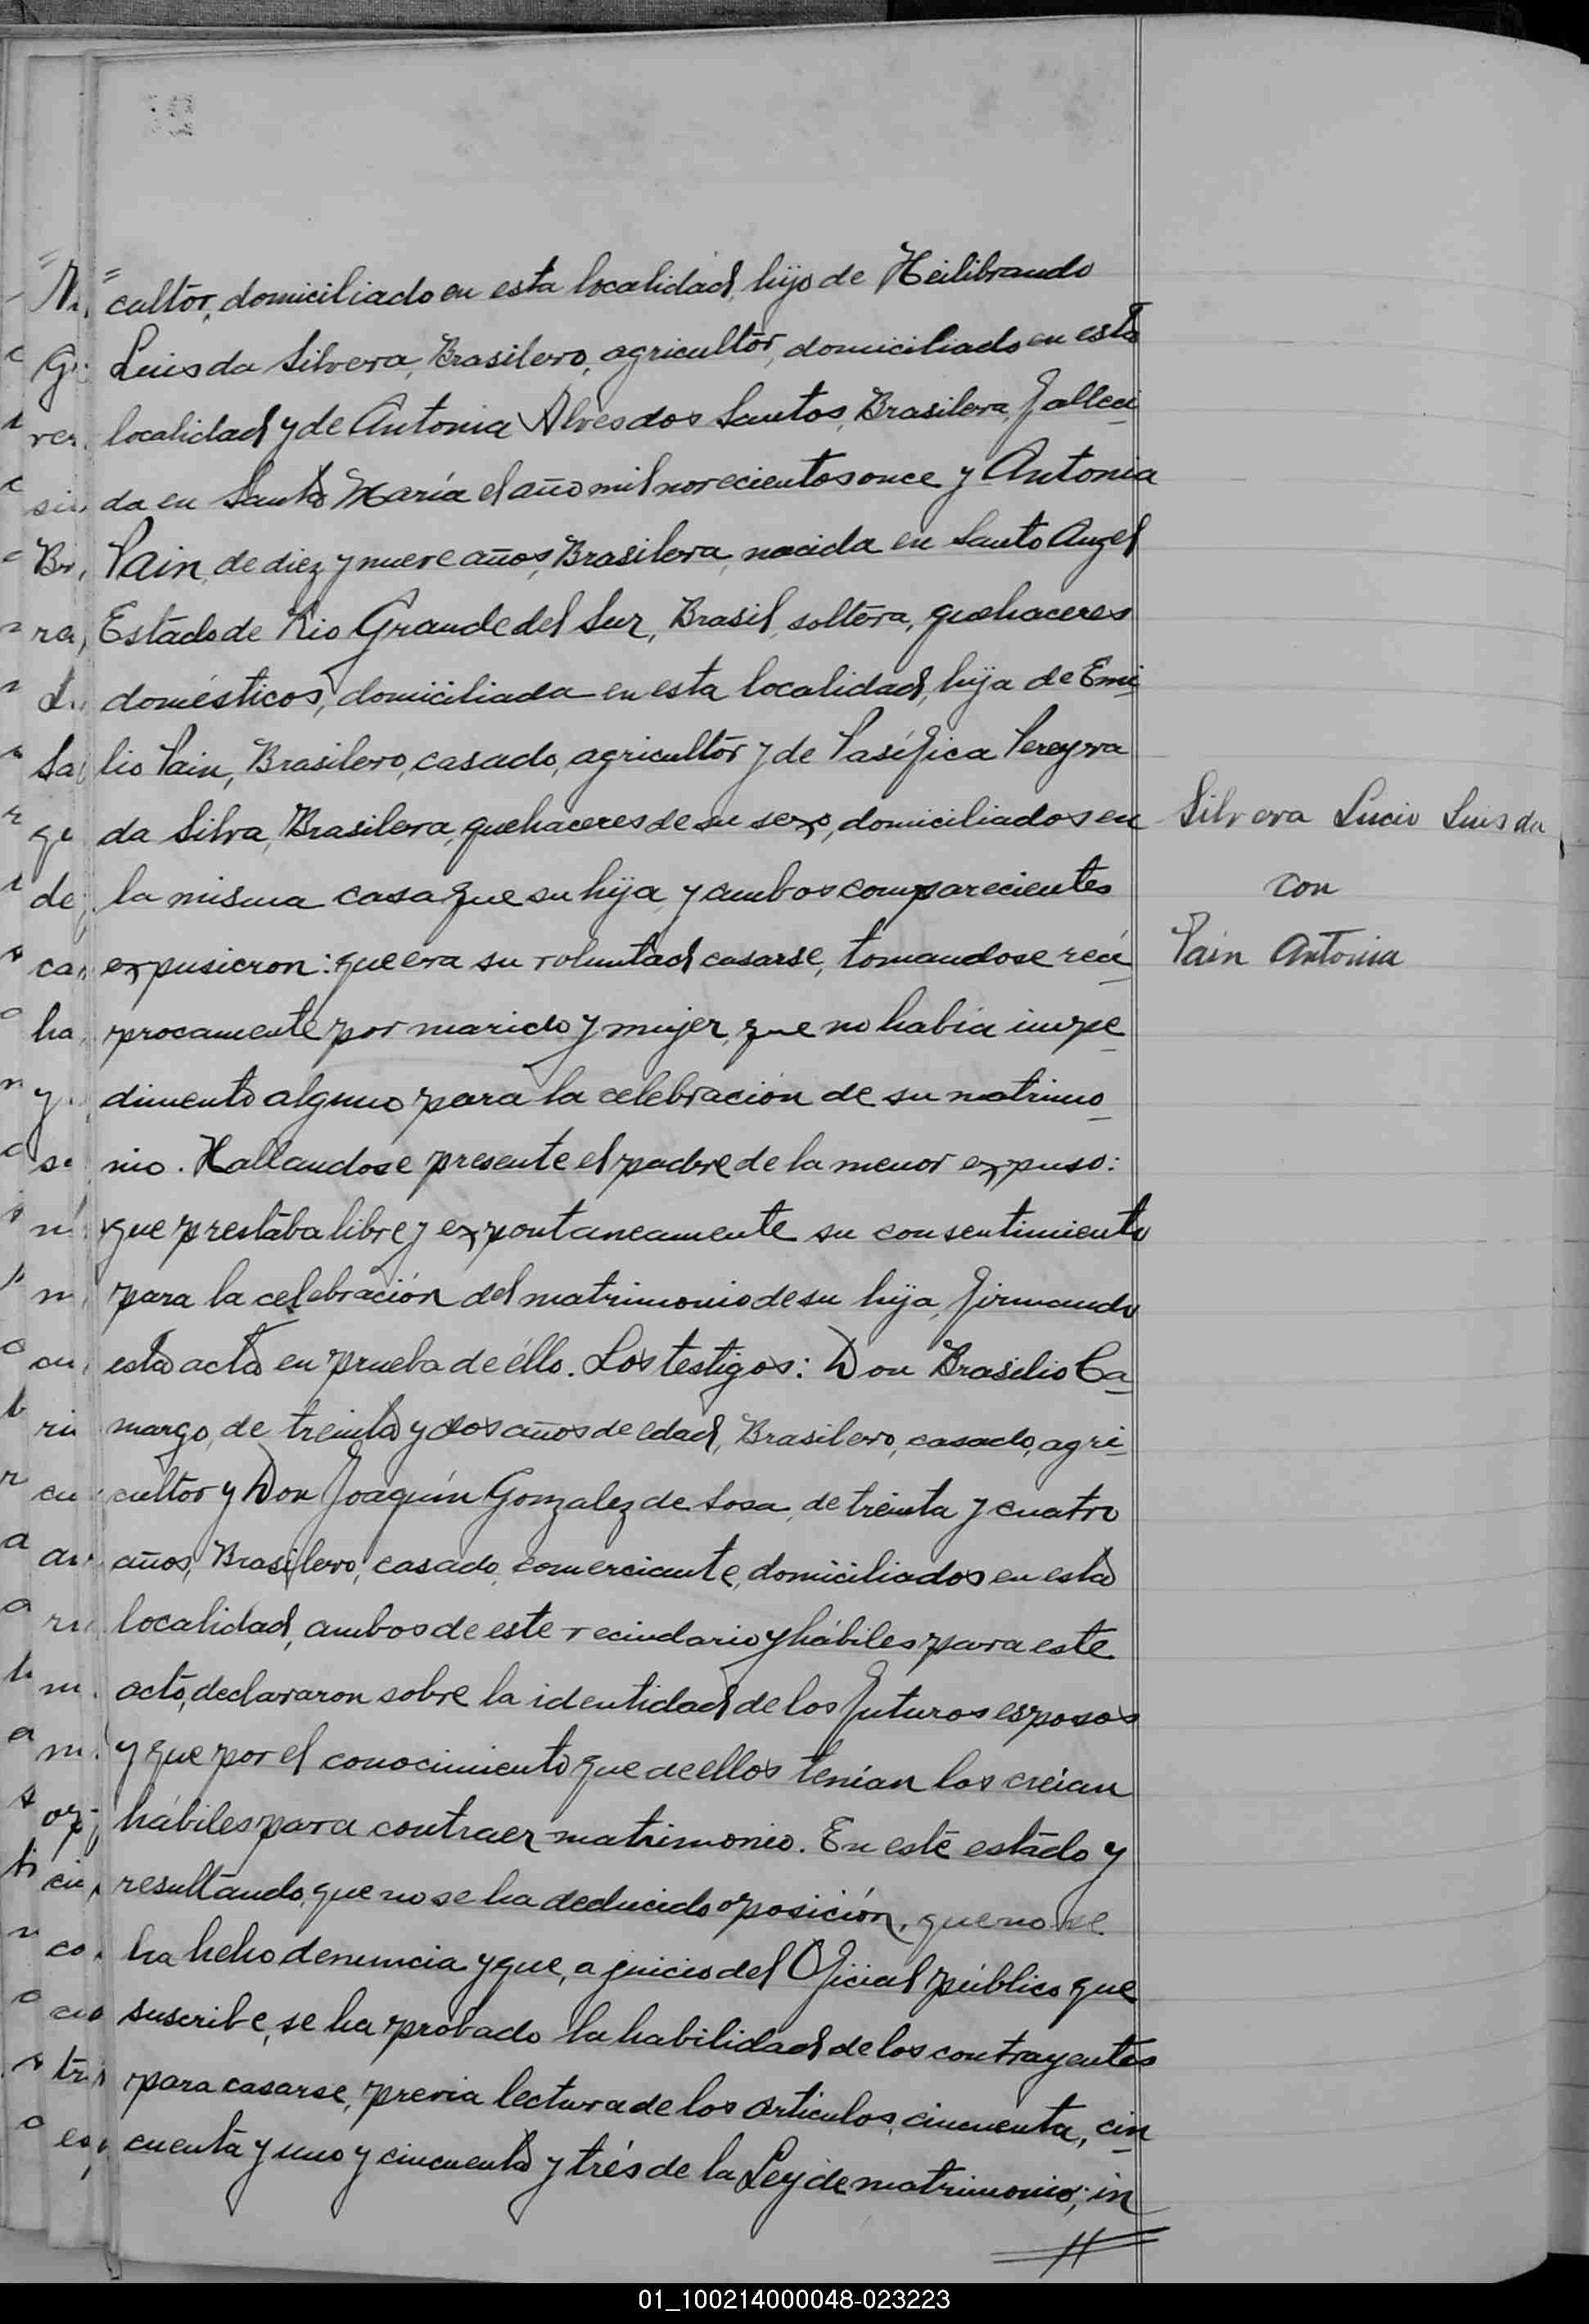 "cultor, domiciliado en esta localidad, hijo de Heilibrando
Luis da Silvera, Brasilero, agricultor, domiciliado en esta
localidad y de Antonia Alves dos Santos, Brasilera, falleci
da en Santa María el año mil novecientos once y Antonia
Pain, de diez y nueve años, Brasilera, nacida en Santo Angel
Estado de Rio Grande del Sur, Brasil, soltera, quehaceres
domésticos, domiciliada en esta localidad, hija de Emi
lio Pain, Brasilero, casado, agricultor y de Pasífica Pereyra
da Silva, Brasilera, quehaceres de su sexo, domiciliados en
la misma casa que su hija, y ambos comparecientes
expusieron: que era su voluntad casarse, tomandose recí
procamente por marido y mujer, que no había impe
dimento alguno para la celebración de su matrimo
nio. Hallandose presente el padre de la menor expuso:
que prestaba libre y expontaneamente su consentimiento
para la celebración del matrimonio de su hija, firmando
esta acta en prueba de éllo. Los testigos: Don Brasilio Ca
margo, de treinta y dos años de edad, Brasilero, casado, agri
cultor y Don Joaquín Gonzalez de Sosa, de treinta y cuatro
años, Brasilero, casado, comerciante, domiciliados en esta
localidad, ambos de este vecindario y hábiles para este
acto, declararon sobre la identidad de los futuros esposos
y que por el conocimiento que de ellos tenían los creían
hábiles para contraer matrimonio. En este estado y
resultando, que no se ha deducido oposición, que no se
ha heho denuncia y que, a juicio del Oficial público que
suscribe, se ha probado la habilidad de los contrayentes
para casarse, previa lectura de los artículos, cincuenta, cin
cuenta y uno y cincuenta y trés de la Ley de matrimonio; in
Silvera Lucio Luis da
con
Pain Antonia
01_100214000048-023223